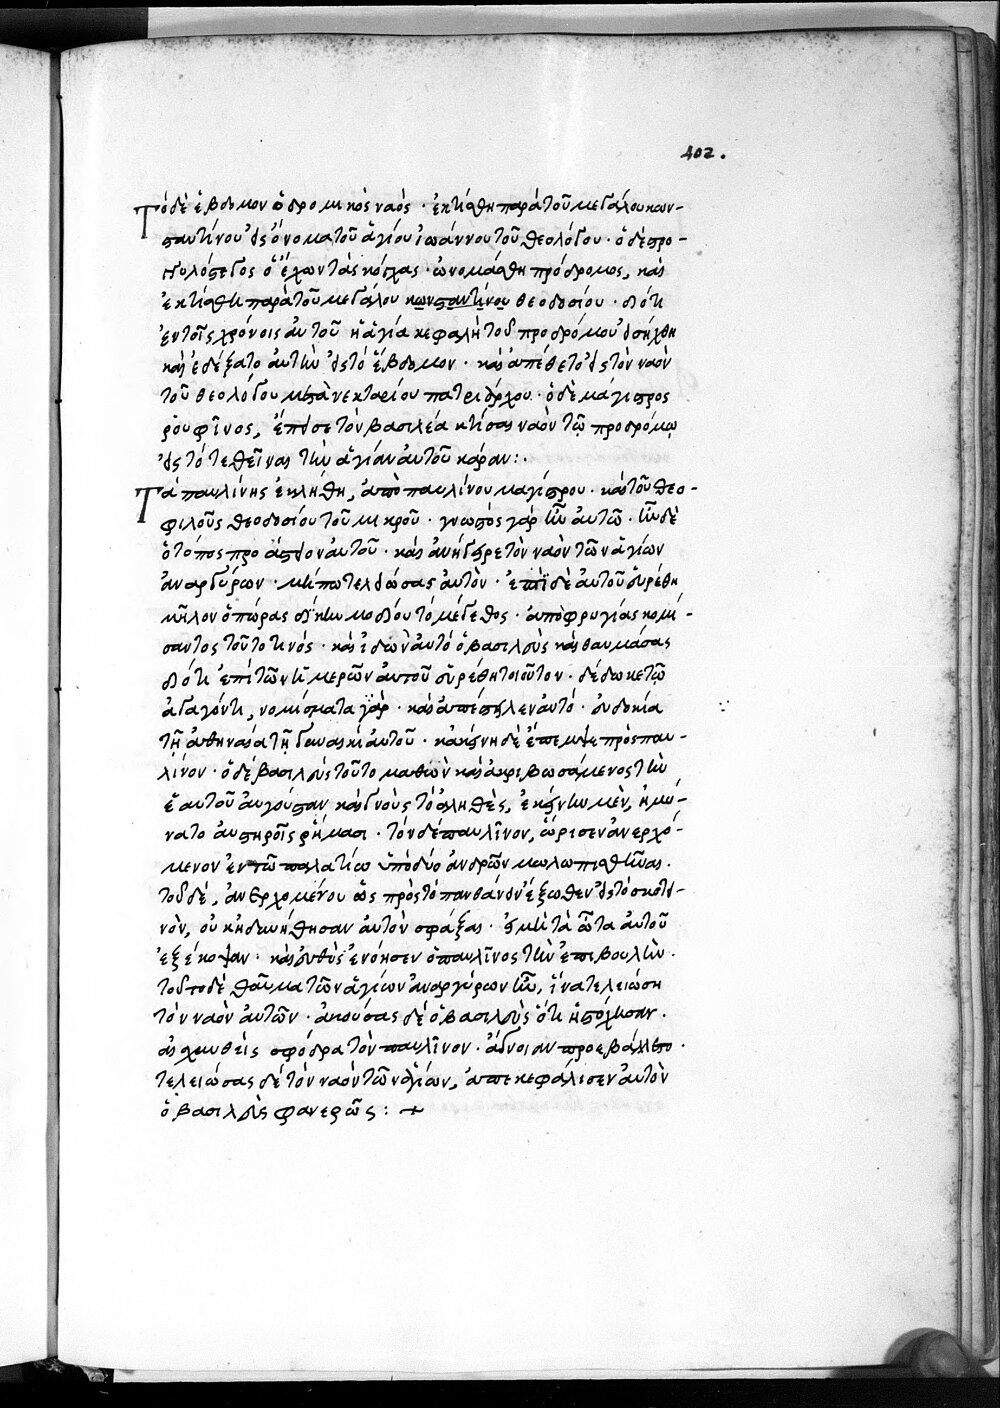 402.
Τὸ δὲ ἕβδομον ὁ δρομικὸς ναός · ἐκτίσθη παρὰ τοῦ μεγάλου κων-
σταντίνου εἰς ὄνομα τοῦ ἁγίου ἰωάννου τοῦ θεολόγου · ὁ δὲ στρο-
γγυλόστεγος ὁ ἔχων τὰς κόγχας · ὠνομάσθη πρόδρομος, καὶ
ἐκτίσθη παρὰ τοῦ μεγάλου κωνσταντίνου θεοδοσίου · διότι
ἐν τοῖς χρόνοις αὐτοῦ ἡ ἁγία κεφαλὴ τοῦ προδρόμου εἰσήχθη
καὶ ἐδέξατο αὐτὴν εἰς τὸ ἕβδομον · καὶ ἀπέθετο εἰς τὸν ναὸν
τοῦ θεολόγου μετὰ νεκταρίου πατριάρχου · ὁ δὲ μάγιστρος
ῥουφῖνος, ἔπεισε τὸν βασιλέα κτίσαι ναὸν τῷ προδρόμῳ
εἰς τὸ τεθεῖναι τὴν ἁγίαν αὐτοῦ κάραν : ·
Τὰ παυλίνης ἐκλήθη, ἀπὸ παυλίνου μαγίστρου · καὶ τοῦ θεο-
φιλοῦς θεοδοσίου τοῦ μικροῦ · γνωστὸς γὰρ ἦν αὐτῶ · ἦν δὲ
ὁ τόπος προάστειον αὐτοῦ · καὶ ἀνήγειρε τὸν ναὸν τῶν ἁγίων
ἀναργύρων · μήπω τελειώσας αὐτὸν · ἐπὶ δὲ αὐτοῦ εὑρέθη
μῆλον ὀπώρας δίκην μοδίου τὸ μέγεθος · ἀπὸ φρυγίας κομί-
σαντος τοῦτο τινός · καὶ ἰδὼν αὐτὸ ὁ βασιλεὺς καὶ θαυμάσας
διότι ἐπὶ τῶν ἡμερῶν αὐτοῦ εὑρέθη τοιοῦτον · δέδωκε τῶ
ἀγαγόντι, νομίσματα γὰρ · καὶ ἀπέστειλεν αὐτὸ · εὐδοκία
τῇ ἀθηναία τῇ γυναικὶ αὐτοῦ · κἀκείνη δὲ ἔπεμψε πρὸς παυ-
λίνον · ὁ δὲ βασιλεὺς τοῦτο μαθὼν καὶ ἀκριβωσάμενος τὴν
ἑαυτοῦ αὐγούσταν καὶ γνοὺς τὸ ἀληθὲς, ἐκείνην μὲν, ἠμύ-
νατο αὐστηροῖς ῥήμασι · τὸν δὲ παυλῖνον, ὥρισεν ἀνερχό-
μενον ἐν τῶ παλατίω ὑπὸ δύο ἀνδρῶν μωλωπισθῆναι ·
τοῦ δὲ, ἀνερχομένου ὡς πρὸς τὸ πανθάνειν ἔξωθεν εἰς τὸ σκοτει-
νὸν, οὐκ ἠδυνήθησαν αὐτὸν σφάξαι · εἰ μὴ τὰ ὦτα αὐτοῦ
ἐξέκοψαν · καὶ εὐθὺς ἐνόησεν ὁ παυλῖνος τὴν ἐπιβουλὴν ·
τοῦτο δὲ θαῦμα τῶν ἁγίων ἀναργύρων ἦν, ἵνα τελειώση
τὸν ναὸν αὐτῶν · ἀκούσας δὲ ὁ βασιλεὺς ὅτι ἠστόχησαν ·
αἰσχυνθεὶς σφόδρα τὸν παυλῖνον · ἄγνοιαν προεβάλετο ·
τελειώσας δὲ τὸν ναὸν τῶν ἁγίων, ἀπεκεφάλισεν αὐτὸν
ὁ βασιλεὺς φανερῶς : +